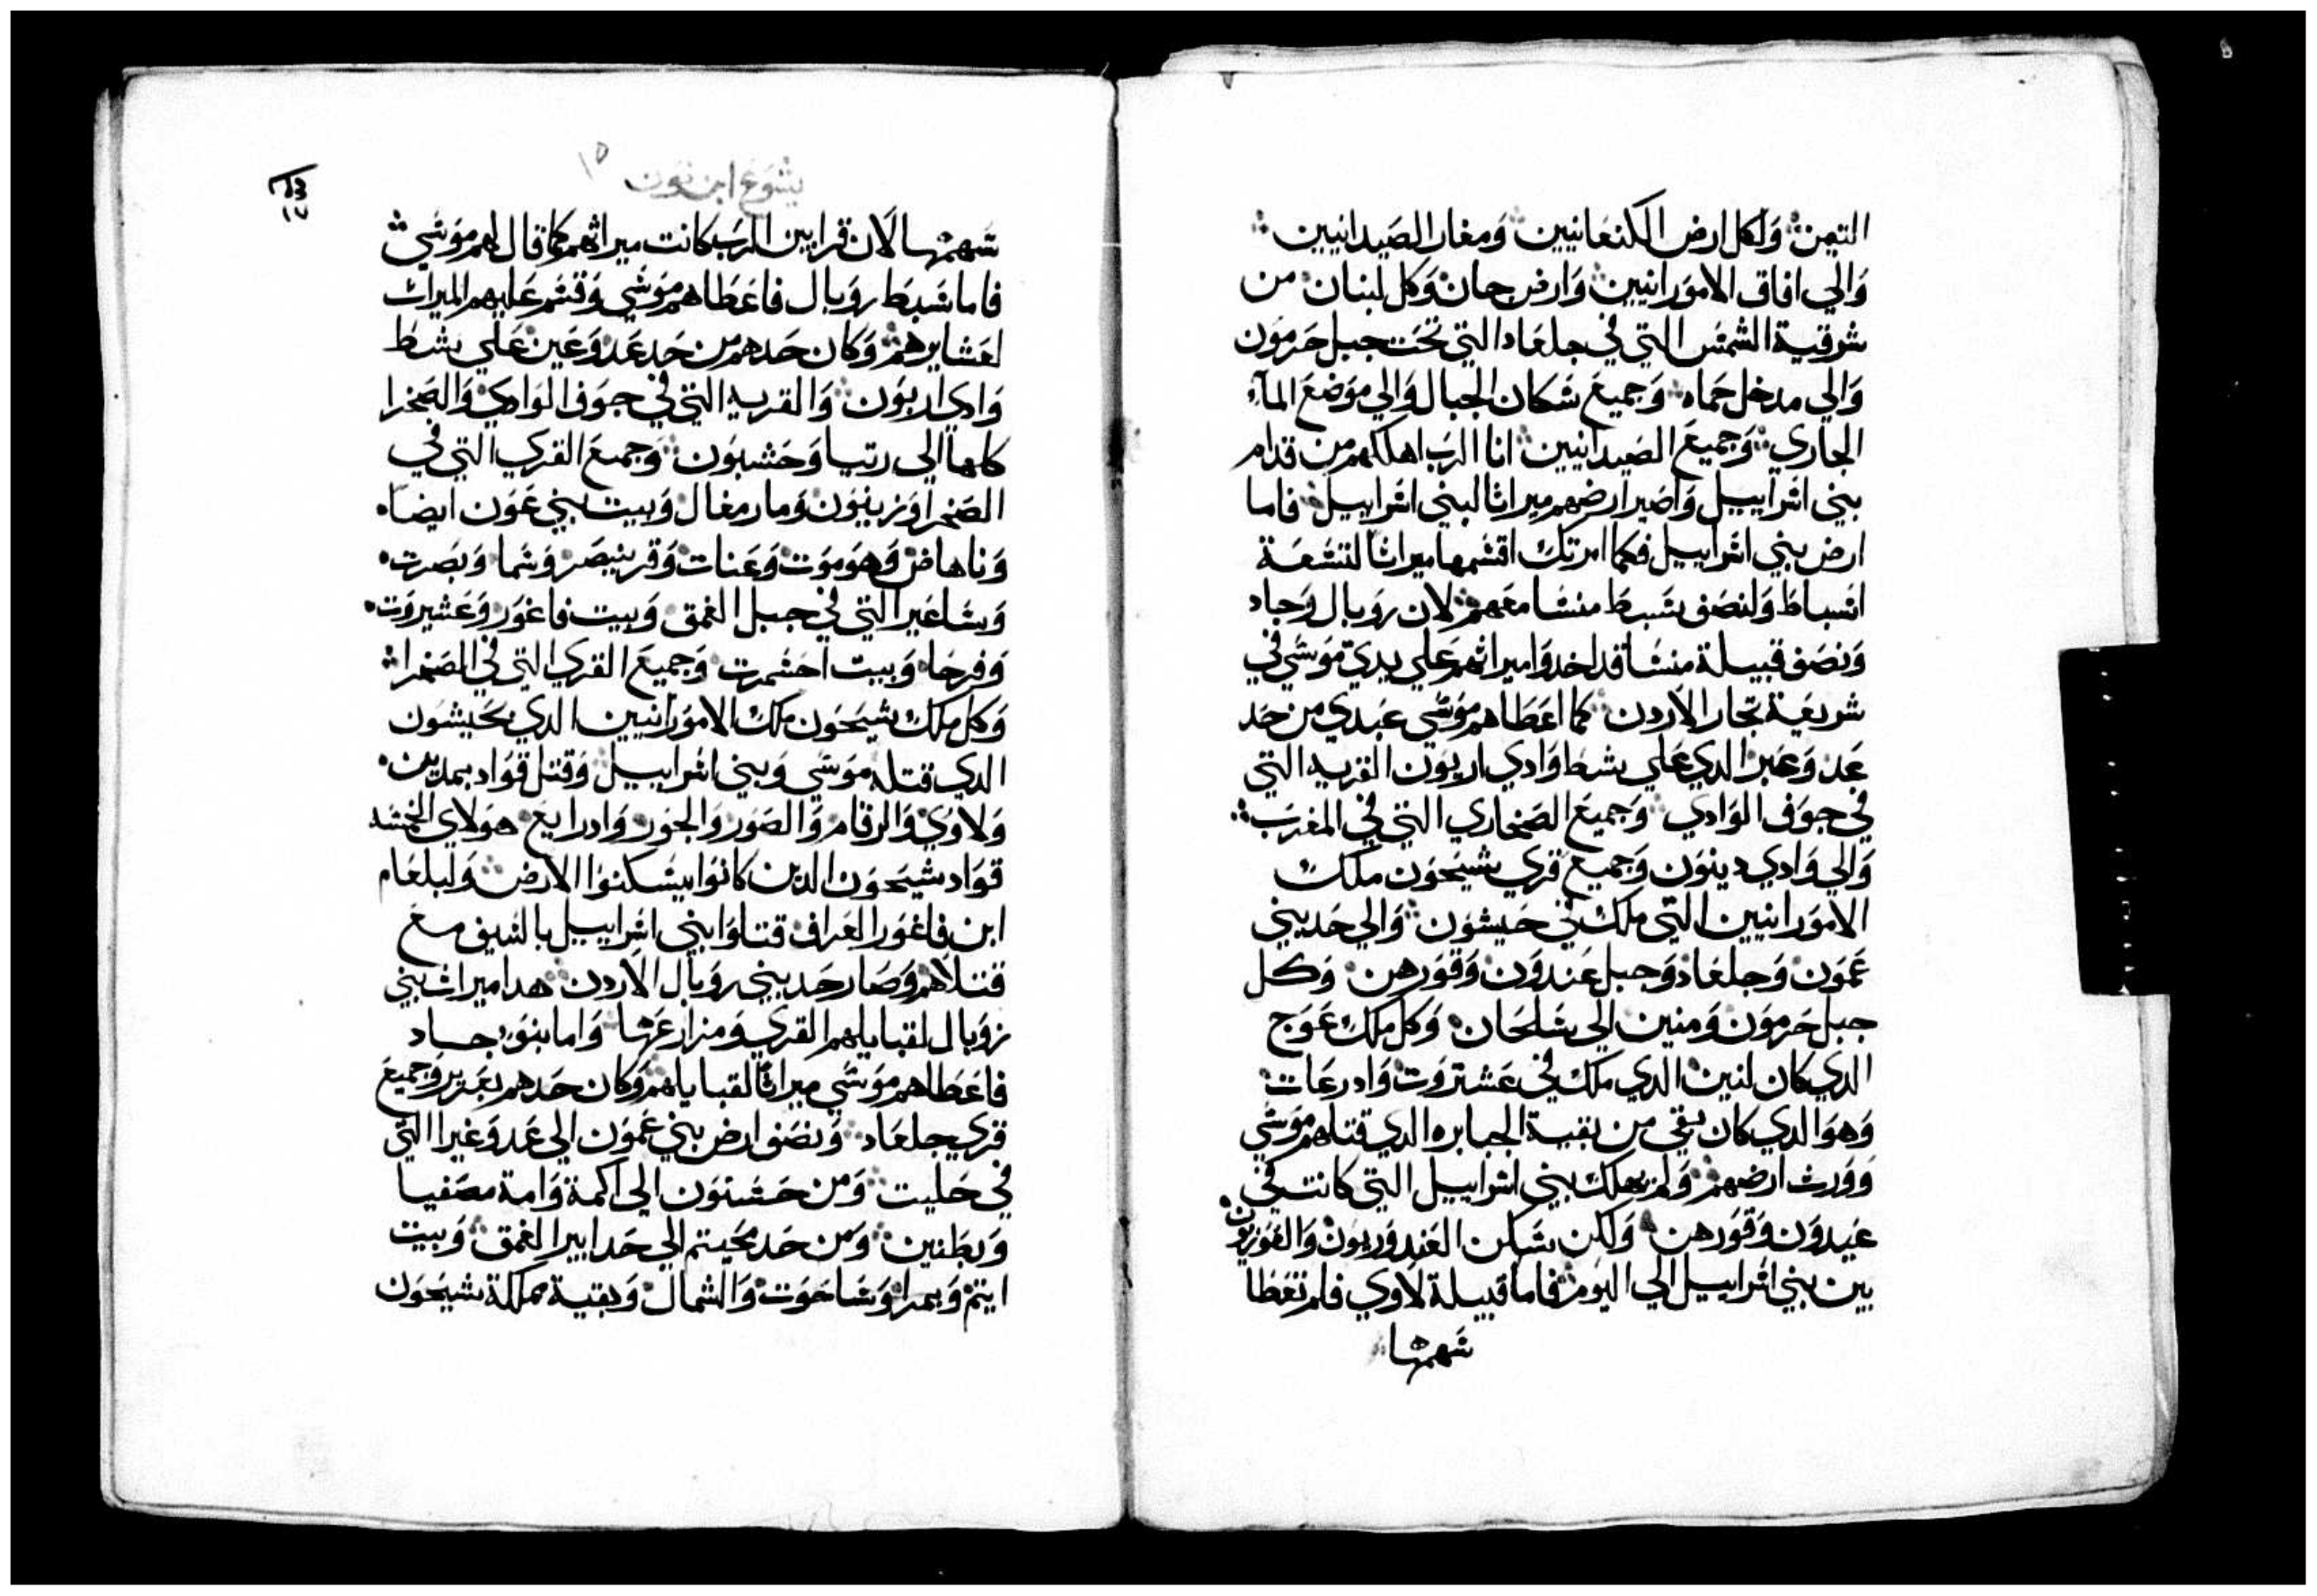 التيمن ولكل ارض الكنعانيين ومغار الصيدانيين
والي افاق الاموارنيين وارض جان وكل لبنان من
شرقية الشمس التي في جلعاد التي تحت جبل حرمون
والي مدخل حماه وجميع سكان الجبال والي موضع المآء
الجاري وجميع الصيدانيين انا الرب اهلكهم من قدام
بني اسراييل واصير ارضهم ميراثا لبني اسراييل فاما
ارض بني اسراييل فكما امرتك اقسمها ميراثا لتسعة
اسباط ولنصف سبط منسا معهم لان روبال وجاد
ونصف قبيلة منسا قد اخدوا ميراثهم علي يدي موسي في
شريعة تجار الاردن كما اعطاهم موسي عبدي من حد
عد وعبر الدي علي شط وادي اربون القريه التي
في جوف الوادي وجميع الصحاري التي في المغرب
والي وادي دينون وجميع قري سيحون ملك
الاموارنيين التي ملك في حيشون والي حد بني
عمون وجلعاد وجبل عندون وقورهن وكل
جبل حرمون ومنين الي سلحان وكل ملك عوج
الدي كان لنين الدي ملك في عشتروت وادرعات
وهو الدي كان بقي من بقية الجبابره الدي قتلهم موسي
وورث ارضهم ولم يهلك بني اسراييل التي كانت في
عيدون وقورهن ولكن سكن العندوريون والقوريون
بين بني اسراييل الي اليوم فاما قبيلة لاوي فلم تعطا
سهمها
يشوع ابن نون ١٥
سهمها لان قرابين الرب كانت ميراثهم كما قال لهم موسي
فاما سبط روبال فاعطاهم موسي وقسم عليهم الميراث
لعشايرهم وكان حدهم من حد عد وعين علي شط
وادي اربون والقريه التي في جوف الوادي والصحرا
كلها الي رتيا وحشبون وجميع القري التي في
الصحرا وزينون ومار مغال وبيت بني عون ايضا
وناهاض وهو موت وعنات وقرينيصر وشما وبصرت
وساعير التي في جبل الغمق وبيت فاغور وعشيروت
وفرحا وبيت احشمرت وجميع القري التي في الصحرا
وكل ملك سيحون ملك الاموارنيين الدي بحيشون
الدي قتله موسي وبني اسراييل وقتل قواد بمدين
ولاوي والرقام والصور والجور وادرابع هولاي الخمسه
قواد سيحون الدين كانوا يسكنوا الارض ولبلعام
ابن فاغور العراف قتلوا بني اسراييل بالسيف مع
قتلاهم وصار حد بني روبال الاردن هدا ميراث بني
روبال لقبايلهم القري ومزارعها واما بنو جاد
فاعطاهم موسي ميراثا لقبايلهم وكان حدهم بعزير وجميع
قري جلعاد ونصف ارض بني عمون الي عد وغيرا التي
في حليت ومن حسنون الي اكمة وامة مصفيا
وبطنين ومن حد محيتم الي حد ابير الغمق وبيت
ايتم وبمرا وساحوت والشمال وبقية مملكة سيحون